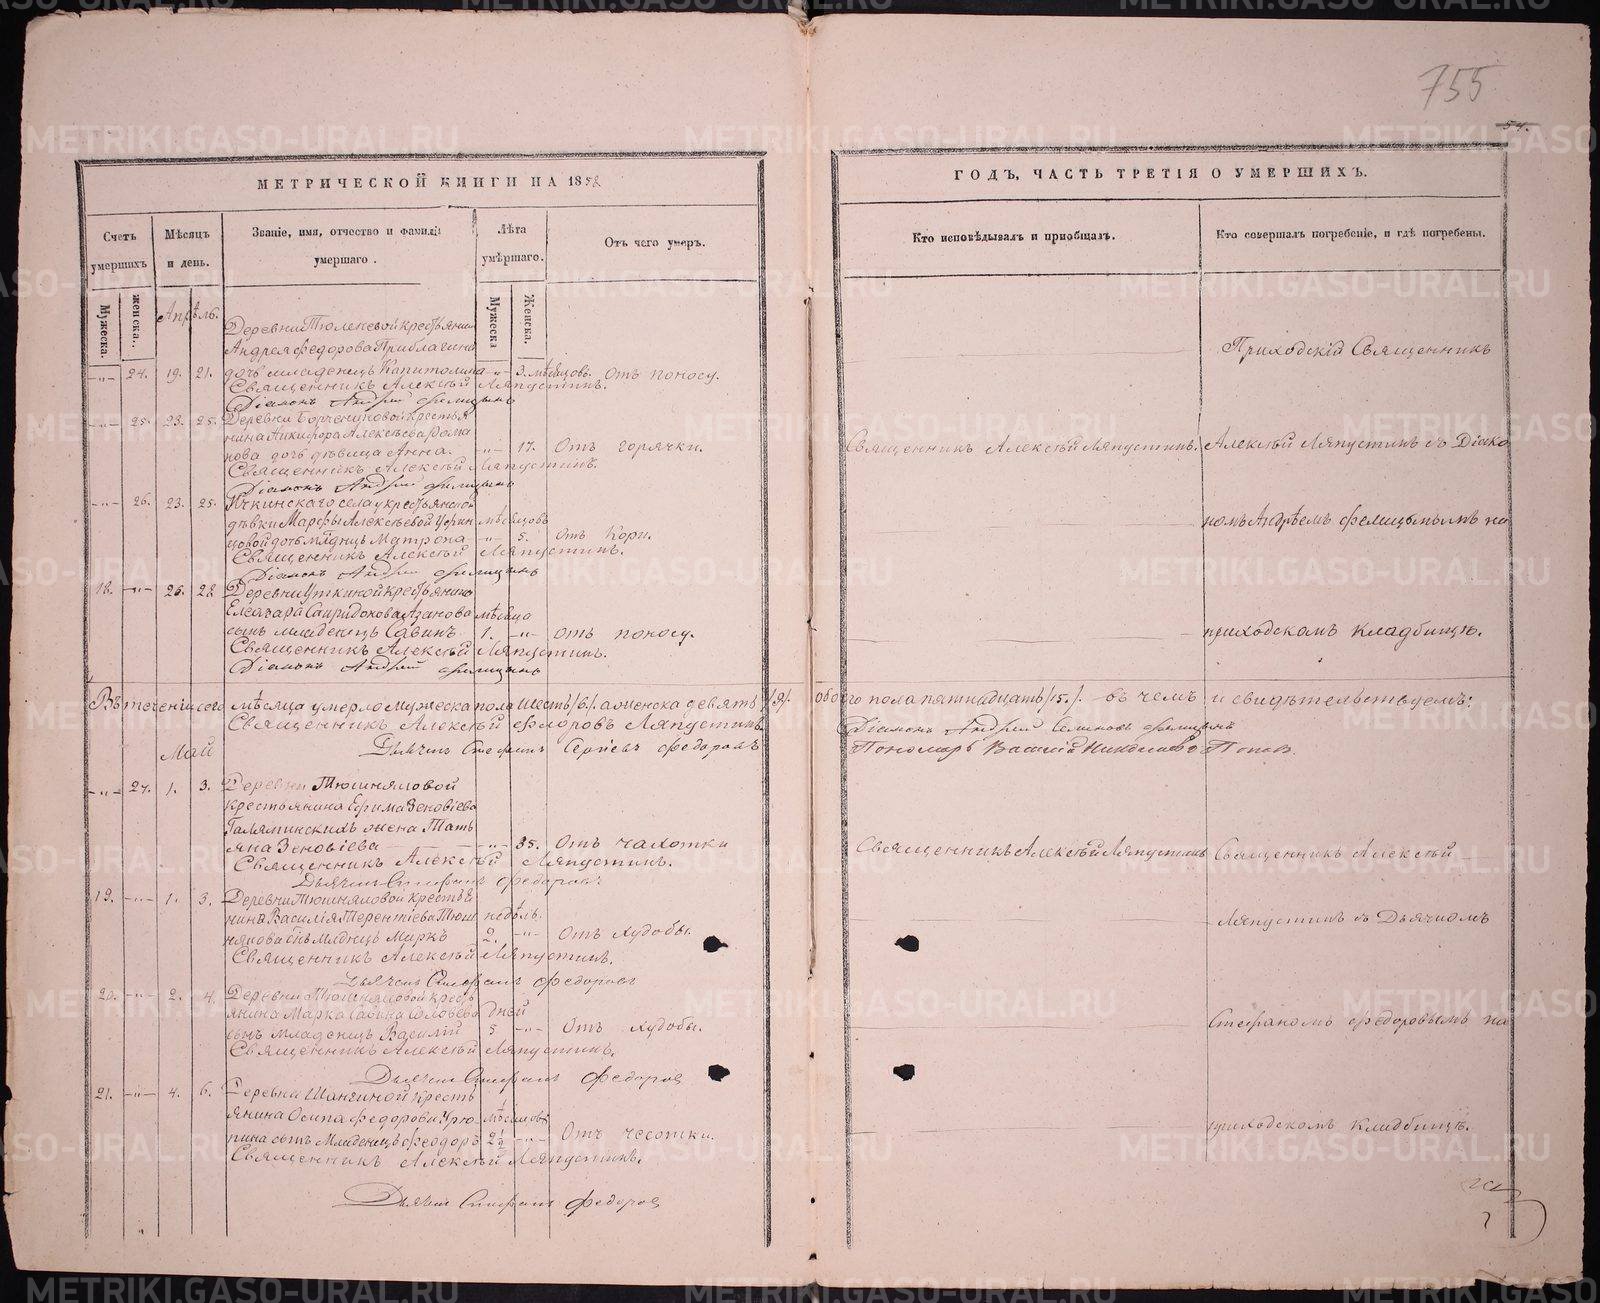 755
54.
МЕТРИЧЕСКОЙ КНИГИ НА 1858
ГОДЪ, ЧАСТЬ ТРЕТІЯ О УМЕРШИХЪ.
Счетъ умершихъ
Мѣсяцъ и день.
Званіе, имя, отчество и фамилія умершаго.
Лѣта умершаго.
Отъ чего умеръ.
Кто исповѣдывалъ и пріобщалъ.
Кто совершалъ погребеніе, и гдѣ погребены.
Мужеска.
женска.
Мужеска
Женска.
Апрѣль.
Деревни Тюленевой крестьянина
Андрея Федорова
24. 19. 21. дочь младенецъ Капитолина 3. мѣсяцовъ. Отъ поносу.
Приходскій Священникъ
Священникъ Алексѣй Ляпустинъ.
Діаконъ Андрей
25. 23. 25. крестья
нина Никифора Алексѣева Рома
нова дочь дѣвица Анна. 17. Отъ горячки.
Священникъ Алексѣй Ляпустинъ. Алексѣй Ляпустинъ съ Діако
Священникъ Алексѣй Ляпустинъ.
Діаконъ Андрей
26. 23. 25. Ичкинскаго села у крестьянской
дѣвки Марфы Алексѣевой мѣсяцовъ
дочь млденцъ Матрона 5. Отъ Кори.
номъ Андреемъ на
Священникъ Алексѣй Ляпустинъ.
Діаконъ Андрей
18. 26. 28. Деревни Уткиной крестьянина
Елеазара мѣсяца
сынъ младенецъ Савинъ 1. Отъ поносу.
приходскомъ кладбищѣ.
Священникъ Алексѣй Ляпустинъ.
Діаконъ Андрей
Въ теченіи сего мѣсяца умерло мужеска пола шесть /6/. а женска девять /9/. обоего пола пятнадцать /15./ въ чемъ и свидѣтельствуемъ:
Священникъ Алексѣй Флоровъ Ляпустинъ
Діаконъ Андрей
Дьячекъ Стефанъ Сергіевъ Федоровъ
Пономарь Василій Николаевъ Поповъ.
Май
27. 1. 3. Деревни Тюшняковой
крестьянина Ефима Зеновіева
жена Тать
яна Зеновіева 35. Отъ чахотки
Священникъ Алексѣй Ляпустинъ Священникъ Алексѣй
Священникъ Алексѣй Ляпустинъ.
Дьячекъ Стефанъ Федоровъ
19. 1. 3. Деревни Тюшняковой крестья
нина Василія Терентіева Тюш недѣль.
някова снъ млднцъ Маркъ 2. Отъ худобы.
Ляпустинъ съ Дьячкомъ
Священникъ Алексѣй Ляпустинъ.
Дьячекъ Стефанъ Федоровъ
20. 2. 4. Деревни Тюшняковой кресть
янина Марка Савина Соловьева дней
сынъ младенецъ Василій 5 Отъ худобы.
Стефаномъ Федоровымъ на
Священникъ Алексѣй Ляпустинъ.
Дьячекъ Стефанъ Федоровъ
21. 4. 6. Деревни кресть
янина Осипа Федорова Урю мѣсяцовъ
пина сынъ младенецъ Феодоръ 2½ Отъ чесотки.
приходскомъ кладбищѣ.
Священникъ Алексѣй Ляпустинъ.
Дьячекъ Стефанъ Федоровъ
METRIKI.GASO-URAL.RU